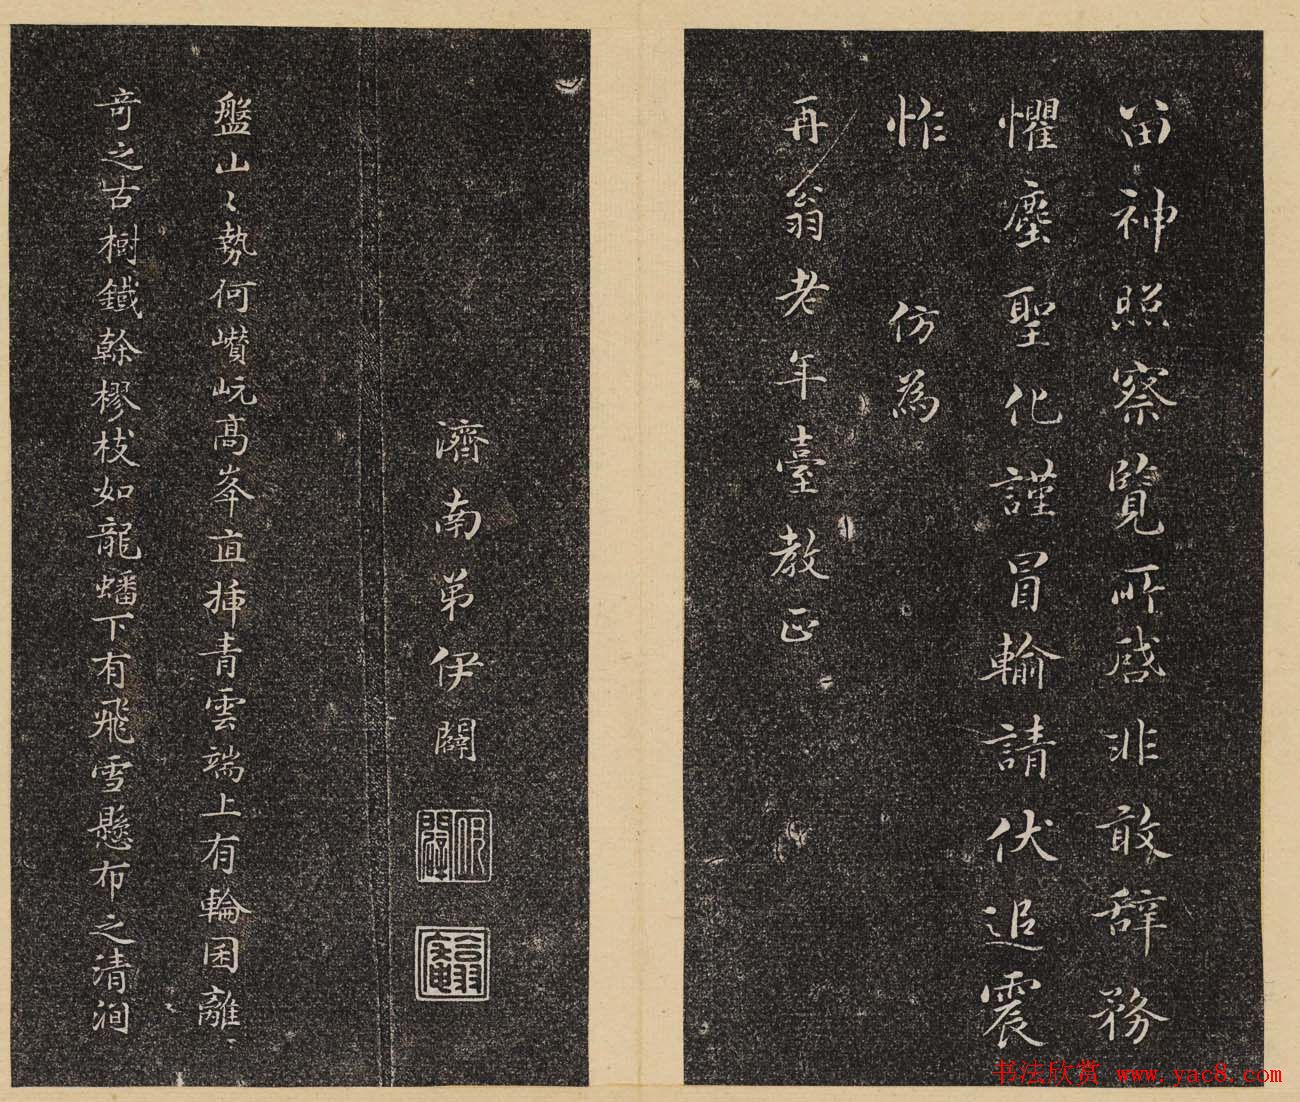 留神照察覽所啓非敢辭務
懼塵聖化謹冒輸請伏追震
怍 仿為
再翁老年臺教正
濟南弟伊闢
伊闢
翕菴
盤山〻勢何巑岏高峯直揷青雲端上有輪囷離〻
奇之古樹鐵榦樛枝如龍蟠下有飛雪懸布之清澗
书法欣赏 www.yac8.com